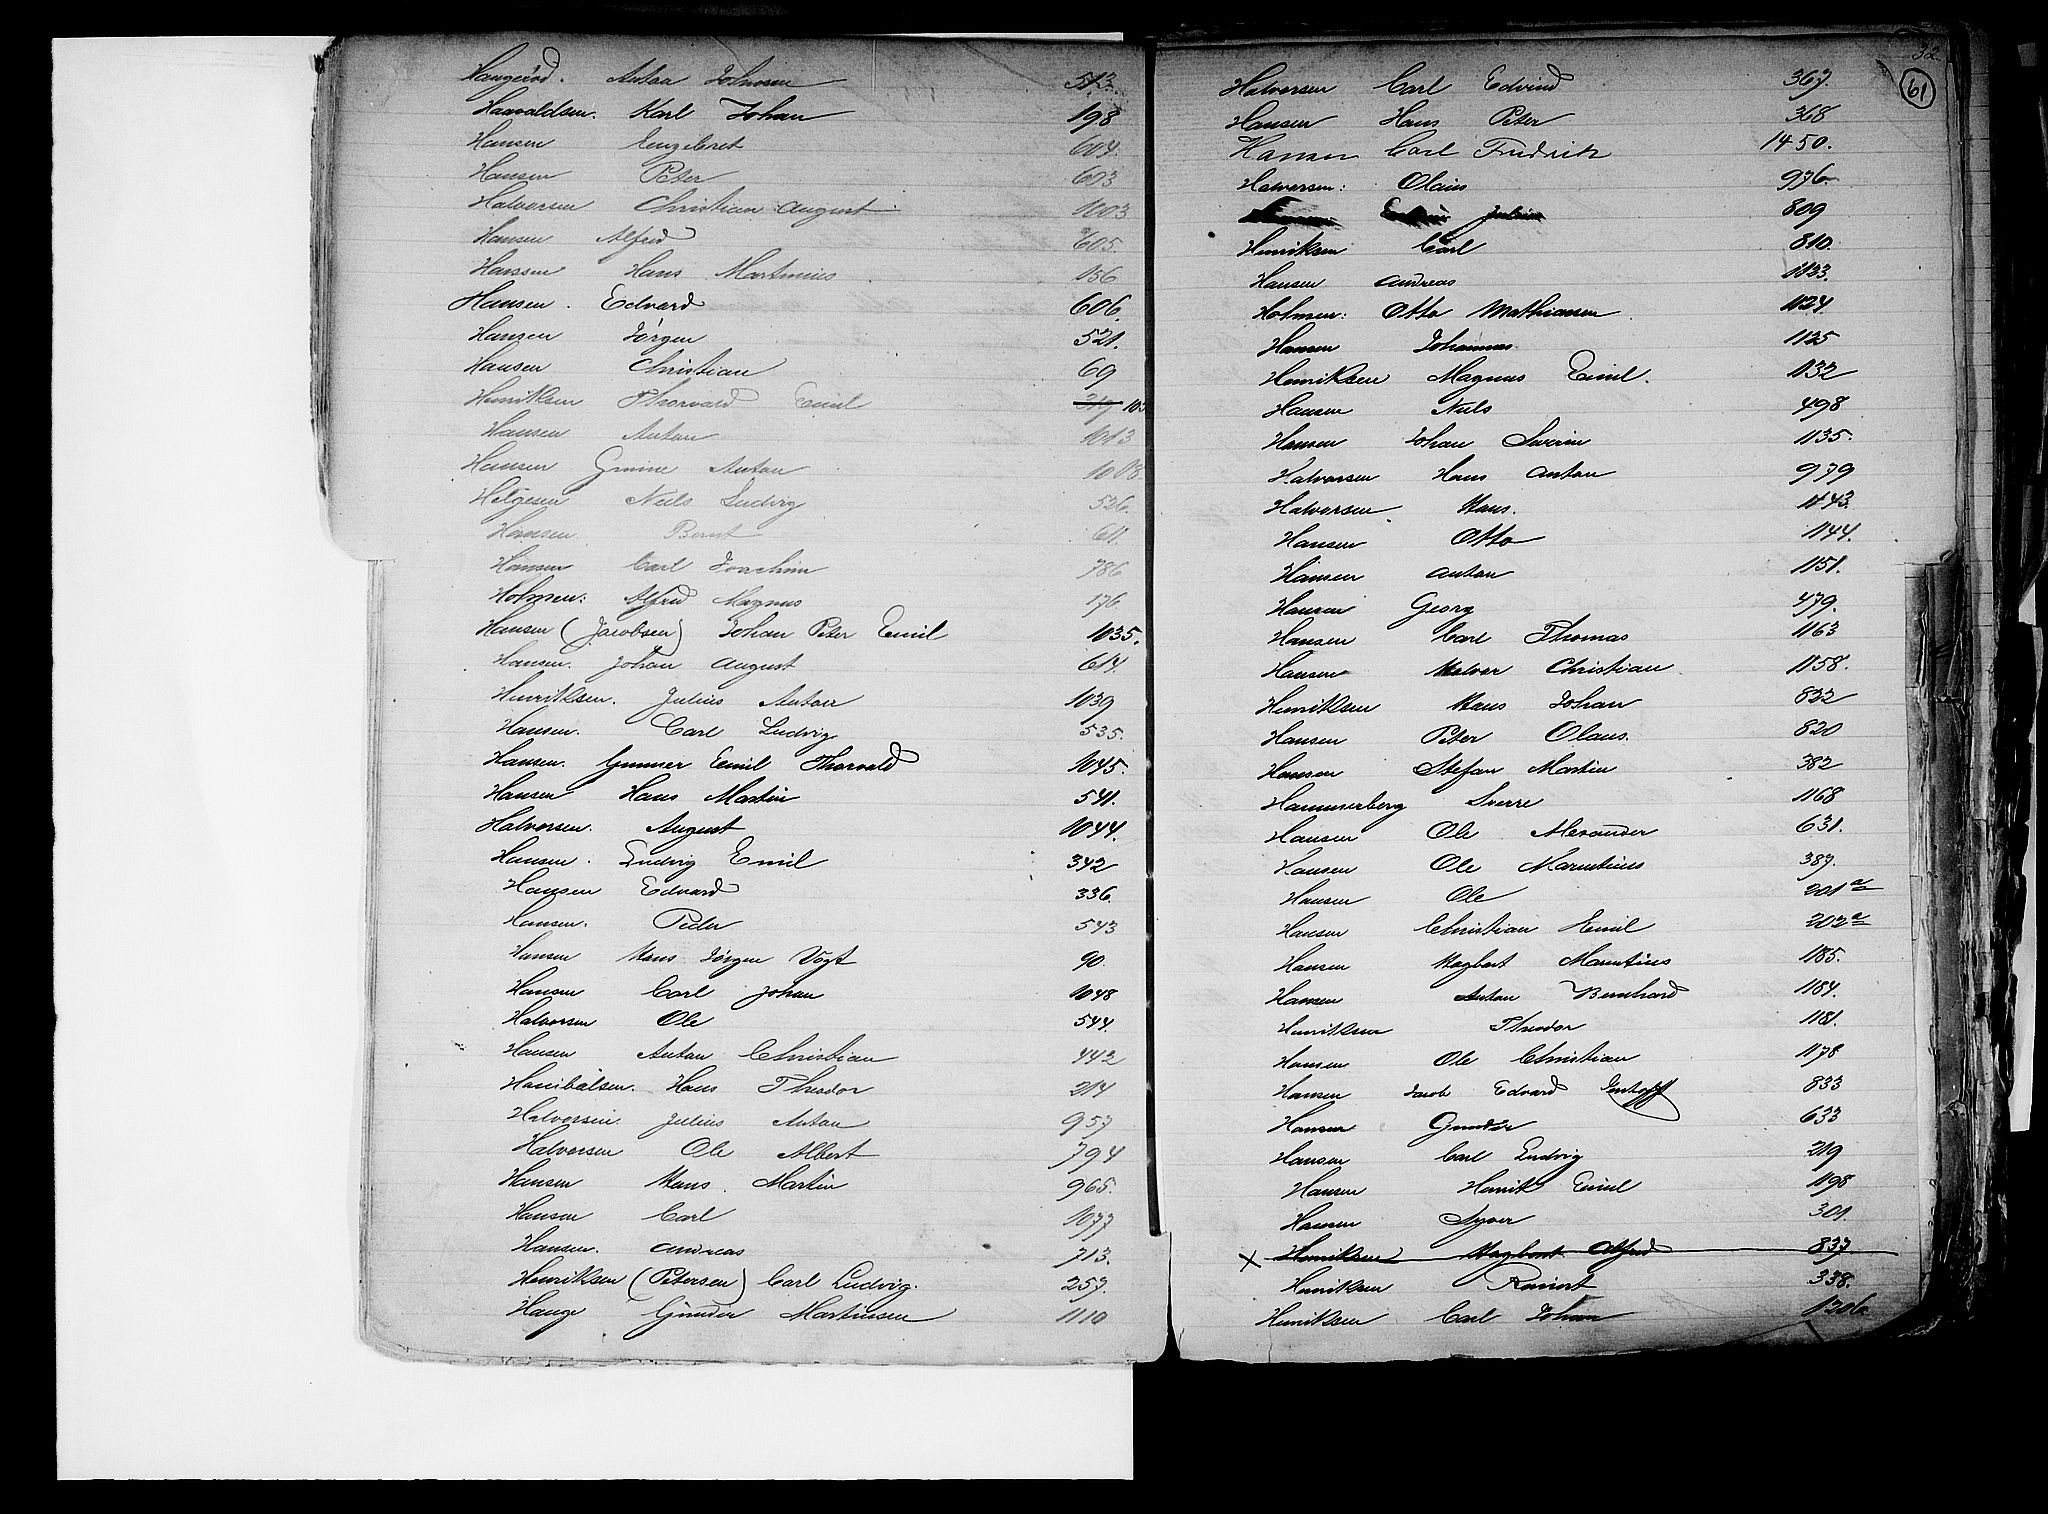 Haugerød. Anton Johnsen 513.
Haavaldsen. Karl Johan 198
Hansen Engebret 604.
Hansen Peter 603
Halvorsen Christian August 1003
Hansen Alfred 605.
Hansen Hans Martinius 156
Hansen. Edvard 606.
Hansen Jørgen 521.
Hansen Christian 69
Henriksen Thorvald Emil 319 103
Hansen Anton 1013
Hansen Anton 1008.
Helgesen Nils Ludvig 526.
Hansen Bernt 611.
Hansen Carl Joachim 786
Holmsen: Alfred Magnus 176.
Hansen (Jacobsen) Johan Peter Emil 1035.
Hansen. Johan August 614.
Henriksen. Julius Anton 1039
Hansen. Carl Ludvig 535.
Hansen. Gunner Emil Thorvald 1045.
Hansen Hans Martin 541.
Halvorsen. August 1044.
Hansen. Ludvig Emil 342
Hansen Edvard 336.
Hansen. Peder 543
Hansen Hans Jørgen Vogt 90.
Hansen Carl Johan 1048
Halvorsen Ole 544.
Hansen Anton Christian 442
Hanibalsen. Hans Theodor 214
Halvorsen. Julius Anton 957
Halvorsen Ole Albert 794
Hansen Hans. Martin 965.
Hansen Carl 1077
Hansen. Andreas 713.
Henriksen (Petersen) Carl Ludvig. 257.
Hauge Gunder Martinsen 1110
32.
61
Halvorsen Carl Edvind 367.
Hansen Hans Peter 368
Hansen Carl Fredrik 1450.
Halvorsen: Olaus 976.
Julius 809
Henriksen Carl 810.
Hansen Andreas 1123.
Holmsen: Otto Mathiasen 1124.
Hansen Johannes 1125
Henriksen Magnus Emil. 1132
Hansen Nils 498
Hansen Johan Severin 1135.
Halvorsen Hans Anton 979
Halvorsen Hans. 1143.
Hansen Otto 1144.
Hansen Anton 1151.
Hansen Georg 479.
Hansen Carl Thomas 1163
Hansen Halvor Christian 1158.
Henriksen Hans Johan 822
Hansen Peter Olaus. 820
Hansen Stefan Martin 382
Hammerberg Sverre 1168
Hansen Ole Alexander 631.
Hansen Ole Marentius 387.
Hansen Ole 201 a
Hansen Christian Emil 202 a
Hansen Hagbart Marentius 1185.
Hansen Anton Bernhard 1184.
Henriksen Theodor 1181.
Hansen Ole Christian 1178
Hansen Jacob Edvard 833
Hansen Gunder 633
Hansen Carl Ludvig 219
Hansen Henrik Emil 1198
Hansen Syver 301.
x Henriksen Hagbart Alfred 837.
Henriksen Reinert 338.
Henriksen Carl Johan 1206.